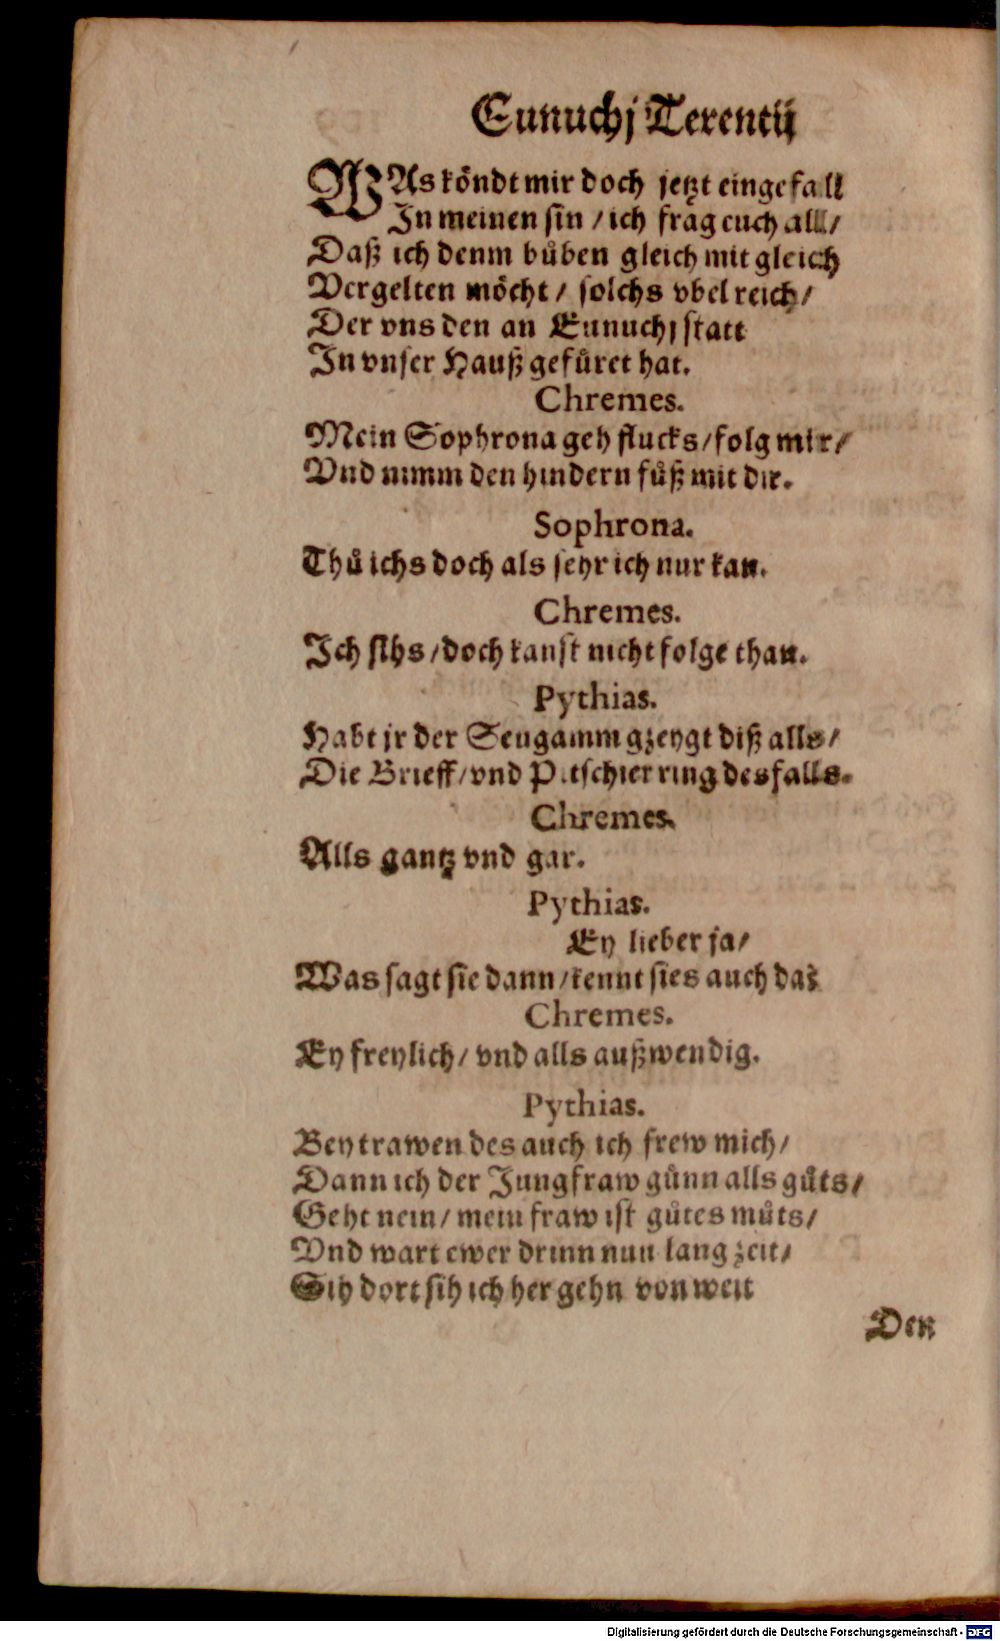 Eunuchj Terentij
WAs köndt mir doch jetzt eingefall
In meinen sin / ich frag euch all /
Daß ich denm bůben gleich mit gleich
Vergelten möcht / solchs vbel reich /
Der vns den an Eunuchj statt
In vnser Hauß gefůret hat.
Chremes.
Mein Sophrona geh flucks / folg mir /
Vnd nimm den hindern fůß mit dir.
Sophrona.
Thů ichs doch als sehr ich nur kan.
Chremes.
Ich sihs / doch kanst nicht folge than.
Pythias.
Habt jr der Seugamm gzeygt diß alls /
Die Brieff / vnd Pitschier ring desfalls.
Chremes.
Alls gantz vnd gar.
Pythias.
Ey lieber ja /
Was sagt sie dann / kennt sies auch da?
Chremes.
Ey freylich / vnd alls außwendig.
Pythias.
Bey trawen des auch ich frew mich /
Dann ich der Jungfraw günn alls gůts /
Geht nein / mein fraw ist gůtes můts /
Vnd wart ewer drinn nun lang zeit /
Sih dort sih ich her gehn von weit
Den
Digitalisierung gefördert durch die Deutsche Forschungsgemeinschaft - DFG